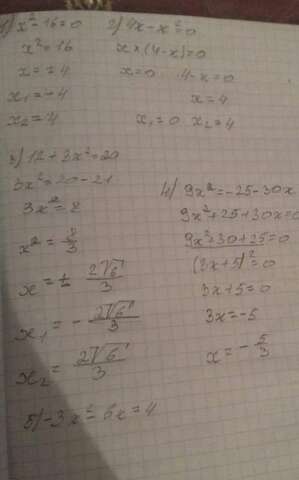 1) x²-16=0
x²=16
x=±4
x₁=-4
x₂=4
2) 4x-x²=0
x×(4-x)=0
x=0 4-x=0
x=4
x₁=0 x₂=4
3) 12+3x²=20
3x²=20-21
3x²=8
x²=8/3
x=± 2√6/3
x₁=- 2√6/3
x₂= 2√6/3
4) 9x²=-25-30x
9x²+25+30x=0
9x²+30+25=0
(3x+5)²=0
3x+5=0
3x=-5
x=- 5/3
5) -3x²-6x=4